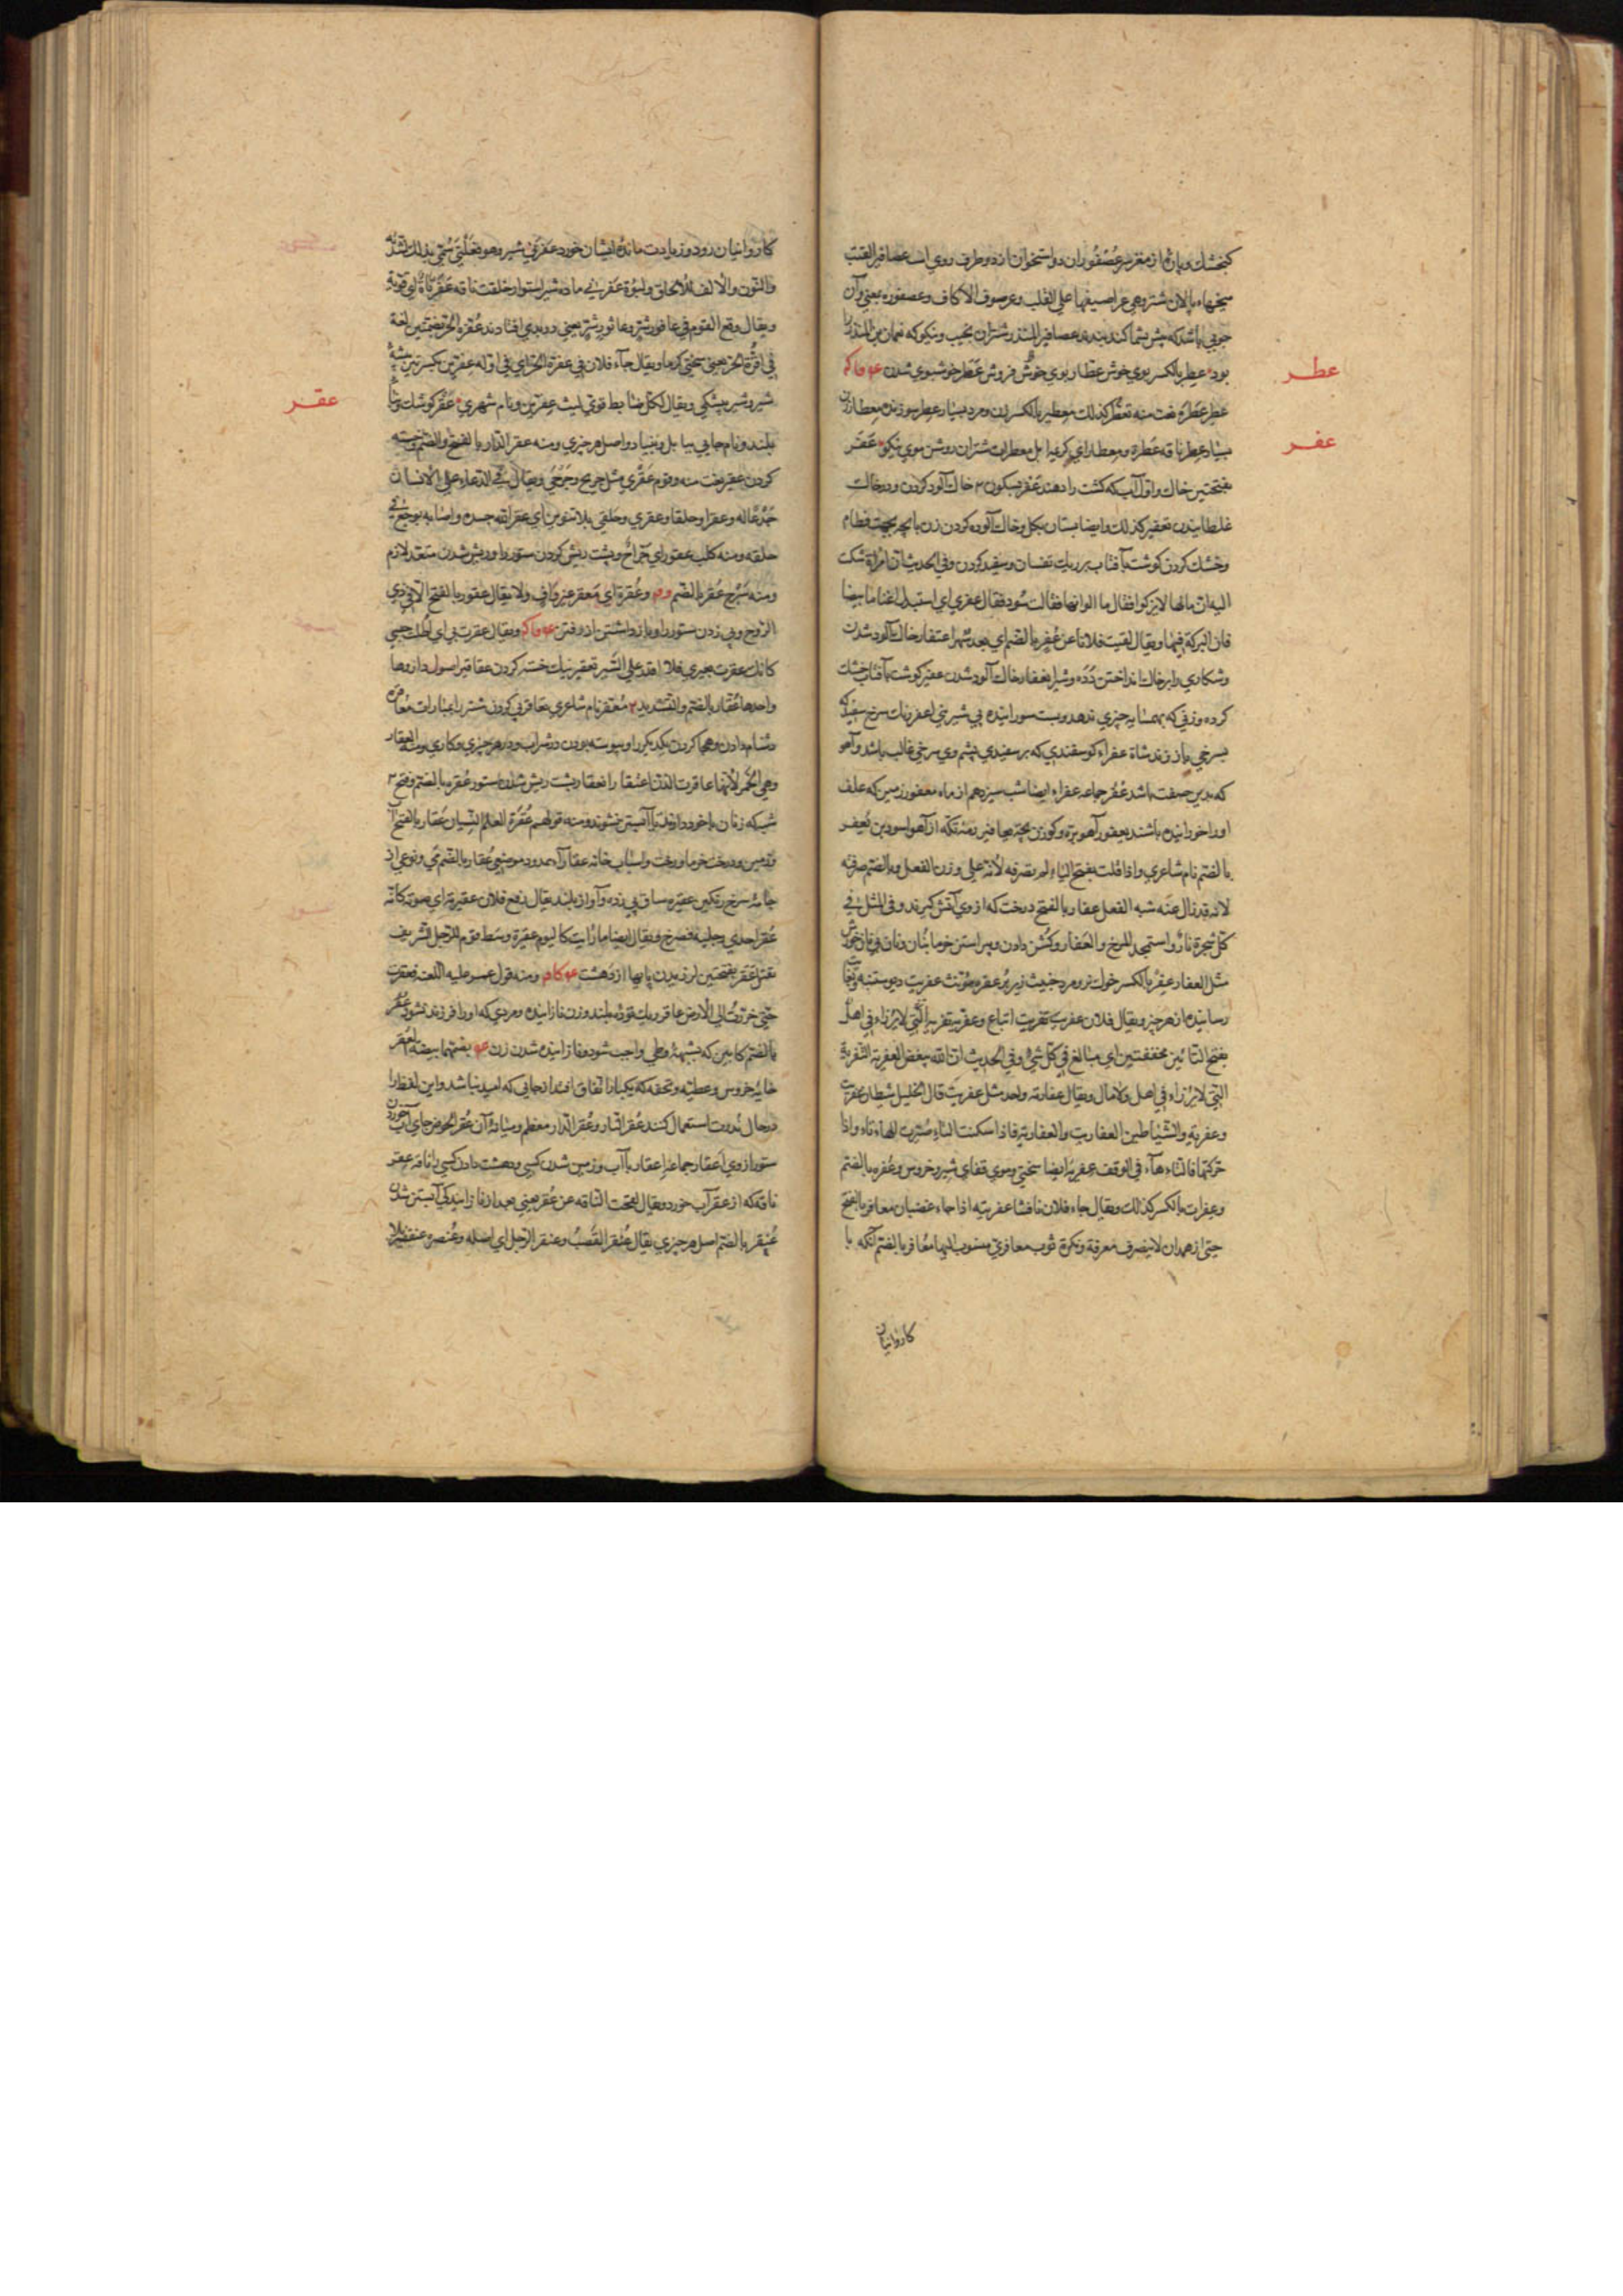 کنجشک و پارهٔ از مغز سر عصفوران دو استخوان از دو طرف روی اسب عصافیر القتب
میخهاء پالان شتر وهی عراصیفها علی القلب وعرصوف الاکاف وعصفوره یعنی وآن
چوبی باشد که پیش شما کند بندند عصافیر المنذر شتران نجیب ونیکو که نعمان بن المنذر را
عطر
بود عطر بالکسر بوی خوش عطار بوی خوش فروش عطر خوشبوی شدن
عطر عطرة نعت منه تعطر کذلک معطیر بالکسر زن ومرد بسیار عطر سوزنده معطار زن
عفر
بسیار عطر ناقه عطرة ومعطار ای کریمة ابل معطرات شتران روشن موی نیکو عفر
بفتحتین خاک واول آب که کشت را دهند عفر بسکون خاک آلود کردن ودر خاک
غلطانیدن تعفیر کذلک وایضا پستان بکل وخاک آلوده کردن زن بابچه بجهت فطام
وخشک کردن کوشت بآفتاب بر ریک تفسان وسفید کردن وفی الحدیث ان امراة شکت
الیه ان مالها لایزکو فقال ما الوانها فقالت سود فقال عفری ای استبدلی اغناما بیضا
فان البرکة فیها ویقال لقیت فلانا عن عفر بالضم ای بعد شهر اعتفار خاک آلود شدن
وشکاری را بر خاک انداختن دده وشیر انعفار خاک آلود شدن عفیر کوشت بآفتاب خشک
کرده وزنی که بهمسایه چیزی ندهد وپست سورانیده بی شیرینی اعفر رنک سرخ سفید که
بسرخی باز زند شاة عفراء کوسفندی که بر سفیدی پشم وی سرخی غالب باشد وآهو
که بدین صفت باشد عفر جماعه عفراء ایضا شب سیزدهم از ماه معفور زمین که علف
او را خورانیده باشند یعفور آهو بره وکوزن بچه یعافیر رمه تکه از آهو اسود بن یعفر
بالضم نام شاعری واذا قلت بفتح الیاء لم تصرفه لانه علی وزن الفعل وبالضم صرفه
لانه قد زال عنه شبه الفعل عفار بالفتح درخت که از وی آتش کیرند وفی المثل فی
کل شجرة نار واستمجد المرخ والعفار وکشن دادن وپیراستن خرما بنان ونان بی نان خورش
مثل العفار عفر بالکسر خوک نر ومرد خبیث زیر پر عفره مؤنث عفریت دیو ستنبه
رساننده از هر چیز ویقال فلان عفریت نفریت اتباع وعفریة نفریة
بفتح التائین مخففتین ای مبالغ فی کل شیء وفی الحدیث ان الله یبغض العفریة النفریة
التی لایرزاء فی اهل ولا مال ویقال عفاریه واحد مثل عفریت قال الخلیل شیطان عفریت
وعفریة والشیاطین العفاریت والعفاریة فاذا سکنت الیاء صیرت الهاء تاء واذا
حرکتها فالتاء هاء فی الوقف عفریة ایضا سختی وموی قفای شیر وخروس وعفره بالضم
وعفرات بالکسر کذلک ویقال جاء فلان نافشا عفریته اذا جاء غضبان معافر بالفتح
حیی از همدان لاینصرف معرفة ونکرة ثوب معافری منسوب الیها معافر بالضم آنکه با
کاروانیان
کاروانیان رود وزیادت مانده ایشان خورد عفرنی شیر وهو فعلنی سمی بذلک لشدته
والنون والالف للالحاق ولبوة عفرنی ماده شیر استوار خلقت ناقه عفرناة ای قویة
ویقال وقع القوم فی عافور شر وعاثور شر یعنی در بدی افتادند عفرة الحر بضمتین لغة
فی افرة الحر یعنی سختی کرما ویقال جاء فلان فی عفرة الحر ای فی اوله عفرین بکسرتین بیشهٔ
عقر
شیر وشیر بیشکی ویقال لکل ضابط قوی لیث عفرین ونام شهری عقر کوشک وبناء
بلند ونام جایی ببابل وبنیاد واصل هر چیزی ومنه عقر الدار بالفتح والضم وخسته
کردن عقیر نعت منه وقوم عقری مثل جریح وجرحی ویقال فی الدعاء علی الانسان
جدعا له وعقرا وحلقا وعقری وحلقی بلا تنوین ای عقر الله جسده واصابه بوجع فی
حلقه ومنه کلب عقور ای جراح وپشت ریش کردن ستور را وریش شدن متعد لازم
ومنه سرج عقر بالضم وعقرة ای معقر غیر واف ولا یقال عقور بالفتح الا فی ذی
الروح وپی زدن ستور را وباز داشتن از رفتن ویقال عقرت بی ای اطلت حبسی
کانک عقرت بعیری فلا اقدر علی السیر تعقیر نیک خسته کردن عقاقیر اصول داروها
واحدها عقار بالفتح والتشدید معقر نام شاعری تعاقر پی کردن شتر را بمبارات معاقرة
دشنام دادن وهجا کردن یکدیکر را وپیوسته بودن در شراب ودر هر چیزی وکاری ومنه العقار
وهی الخمر لانها عاقرت الدن اعتقار انعقار پشت ریش شدن ستور عقره بالضم وفتح
شبکه زنان باخود دارند تا آبستن نشوند ومنه قولهم عقرة العلم النسیان عقار بالفتح آب
وزمین ودرخت خرما ورخت واسباب خانه عقاراء ممدود موضعی عقار بالضم می ونوعی از
جامهٔ سرخ رنکین عقیره ساق پی زده وآواز بلند یقال رفع فلان عقیرته ای صوته کانه
عقر احدی رجلیه فصرخ ویقال ایضا ما رایت کالیوم عقیرة وسط قوم للرجل الشریف
یقتل عقر بفتحتین لرزیدن پایها از دهشت ومنه قول عمر علیه اللعنه فعقرت
حتی خررت الی الارض عاقر ریک تودهٔ بلند وزن نازاینده ومردی که او را فرزند نشود عقر
بالضم کابین که بشبههٔ وطی واجب شود ونازاینده شدن زن بضمهما بیضة العقر
خایهٔ خروس وعطیه وتحفه که یکبار اتفاق افتد از جایی که امید نباشد واین لفظ را
در حال ندرت استعمال کنند عقر النار وعقر الدار معظم ومیانهٔ آن عقر الحوض جای آب خوردن
ستور از وی اعقار جماعة اعقار بآب وزمین شدن کسی ودهشت دادن کسی را ناقة عقر
ناقه که از عقر آب خورد ویقال لقحت الناقه عن عقر یعنی بعد از نازایندکی آبستن شدن
عنقر بالضم اصل هر چیزی یقال عنقر القصب وعنقر الرجل ای اصله وعنصره عنقفیر بلا